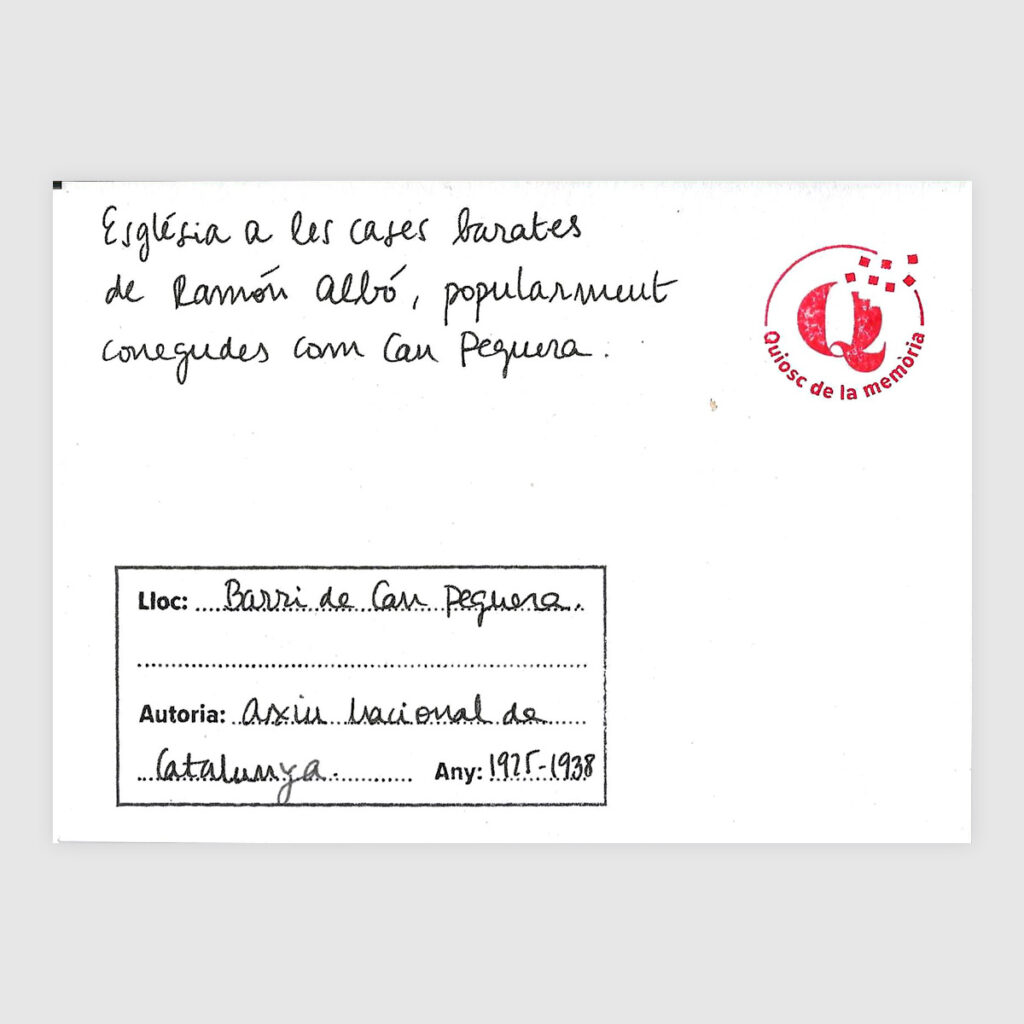 Església a les cases barates
de Ramón Albó, popularment
conegudes com Can Peguera.
Quiosc de la memòria
Lloc: Barri de Can Peguera.
Autoria: Arxiu Nacional de
Catalunya. Any: 1925-1938